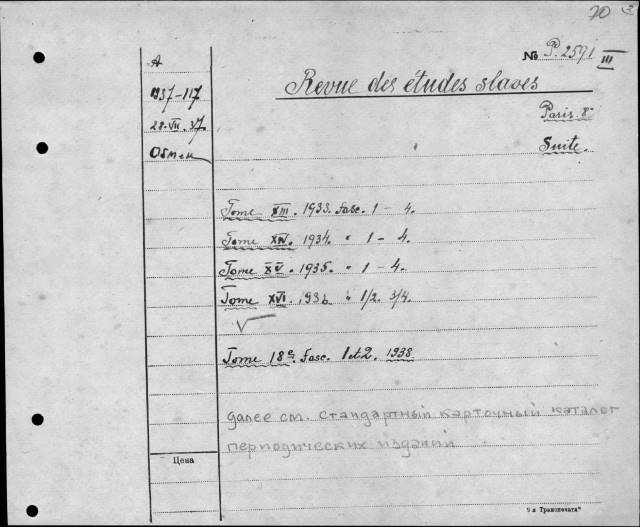 70
№ P. 2591 III
A
1937-117
28.VII.37.
Обмен
Revue des études slaves
Paris. 8º
Suite.
Tome XIII. 1933. fasc. 1 - 4.
Tome XIV. 1934. " 1 - 4.
Tome XV. 1935. " 1 - 4.
Tome XVI. 1936. " 1/2. 3/4.
√
Tome 18e. fasc. 1 et 2. 1938
далее см. стандартный карточный каталог
периодических изданий
Цена
"я Транспечати"